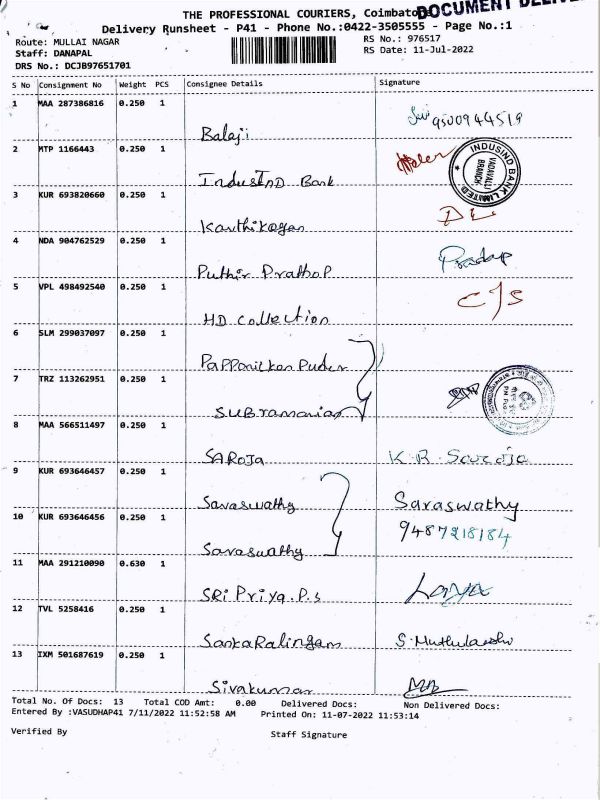 THE PROFESSIONAL COURIERS, Coimbatore
DOCUMENT
Delivery Runsheet - P41 - Phone No.:0422-3505555 - Page No.:1
Route: MULLAI NAGAR
RS No.: 976517
Staff: DANAPAL
RS Date: 11-Jul-2022
DRS No.: DCJB97651701
S No Consignment No Weight PCS Consignee Details Signature
1 MAA 287386816 0.250 1
Balaji 9500944519
2 MTP 1166443 0.250 1
IndusInD Bank
INDUSIND BANK LIMITED
VADAVALLI
BRANCH
3 KUR 693820660 0.250 1
Karthikeyan
4 NDA 904762529 0.250 1
Puthir Prathap Pradap
5 VPL 498492540 0.250 1
HD collection C/S
6 SLM 299037097 0.250 1
7 TRZ 113262951 0.250 1
SUBramanian
8 MAA 566511497 0.250 1
SAROJA K.R. Saroja
9 KUR 693646457 0.250 1
Saraswathy Saraswathy
10 KUR 693646456 0.250 1
9487218184
Saraswathy
11 MAA 291210090 0.630 1
SRi Priya.P.s
12 TVL 5258416 0.250 1
SankaRalingam
13 IXM 501687619 0.250 1
Sivakumar
Total No. Of Docs: 13 Total COD Amt: 0.00 Delivered Docs: Non Delivered Docs:
Entered By :VASUDHAP41 7/11/2022 11:52:58 AM Printed On: 11-07-2022 11:53:14
Verified By Staff Signature